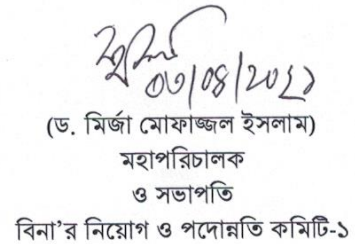 ০৩/০৪/২০২১
(ড. মির্জা মোফাজ্জল ইসলাম)
মহাপরিচালক
ও সভাপতি
বিনা'র নিয়োগ ও পদোন্নতি কমিটি-১